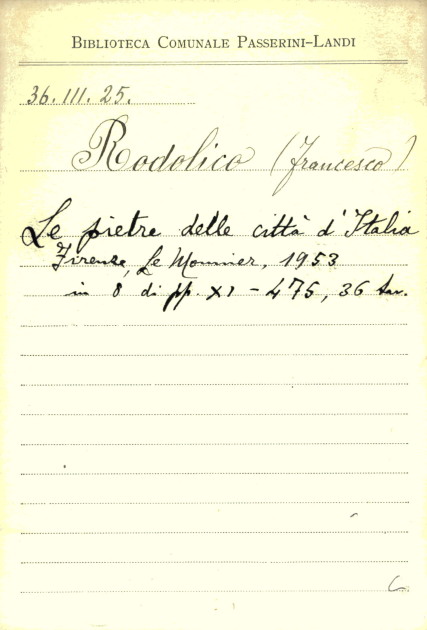 BIBLIOTECA COMUNALE PASSERINI-LANDI
36.III.25.
Rodolico (Francesco)
Le pietre delle città d'Italia
Firenze, Le Monnier, 1953
in 8 di pp. XI - 475, 36 tav.